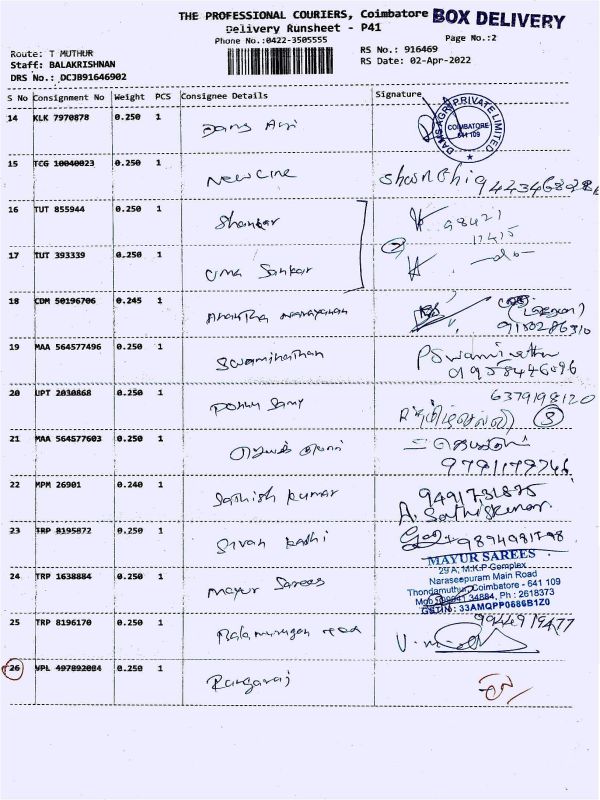 THE PROFESSIONAL COURIERS, Coimbatore BOX DELIVERY
Delivery Runsheet - P41
Phone No.:0422-3505555 Page No.:2
Route: T MUTHUR RS No.: 916469
Staff: BALAKRISHNAN RS Date: 02-Apr-2022
DRS No.: DCJB91646902
S No Consignment No Weight PCS Consignee Details Signature
14 KLK 7970878 0.250 1
DAMS AGRI PRIVATE LIMITED
COIMBATORE
641 109
15 TCG 10040023 0.250 1 Newcine
16 TUT 855944 0.250 1 Shankar 98421
17 TUT 393339 0.250 1 Uma Sankar -do-
18 CDM 50196706 0.245 1 Anantha Narayanan
19 MAA 564577496 0.250 1 Swaminathan
20 UPT 2030868 0.250 1 Ponnu Samy 6379198120
21 MAA 564577603 0.250 1 9791179746
22 MPM 26901 0.240 1 Sathish Kumar
A. Sathiskumar
23 TRP 8195872 0.250 1 9894981798
24 TRP 1638884 0.250 1 Mayur Sarees
MAYUR SAREES
29 A, M.K.P Complex
Naraseepuram Main Road
Thondamuthur, Coimbatore - 641 109
34884, Ph : 2618373
GSTIN : 33AMQPP0686B1Z0
25 TRP 8196170 0.250 1 Balamurugan 9944919477
26 VPL 497892084 0.250 1 Rangaraj